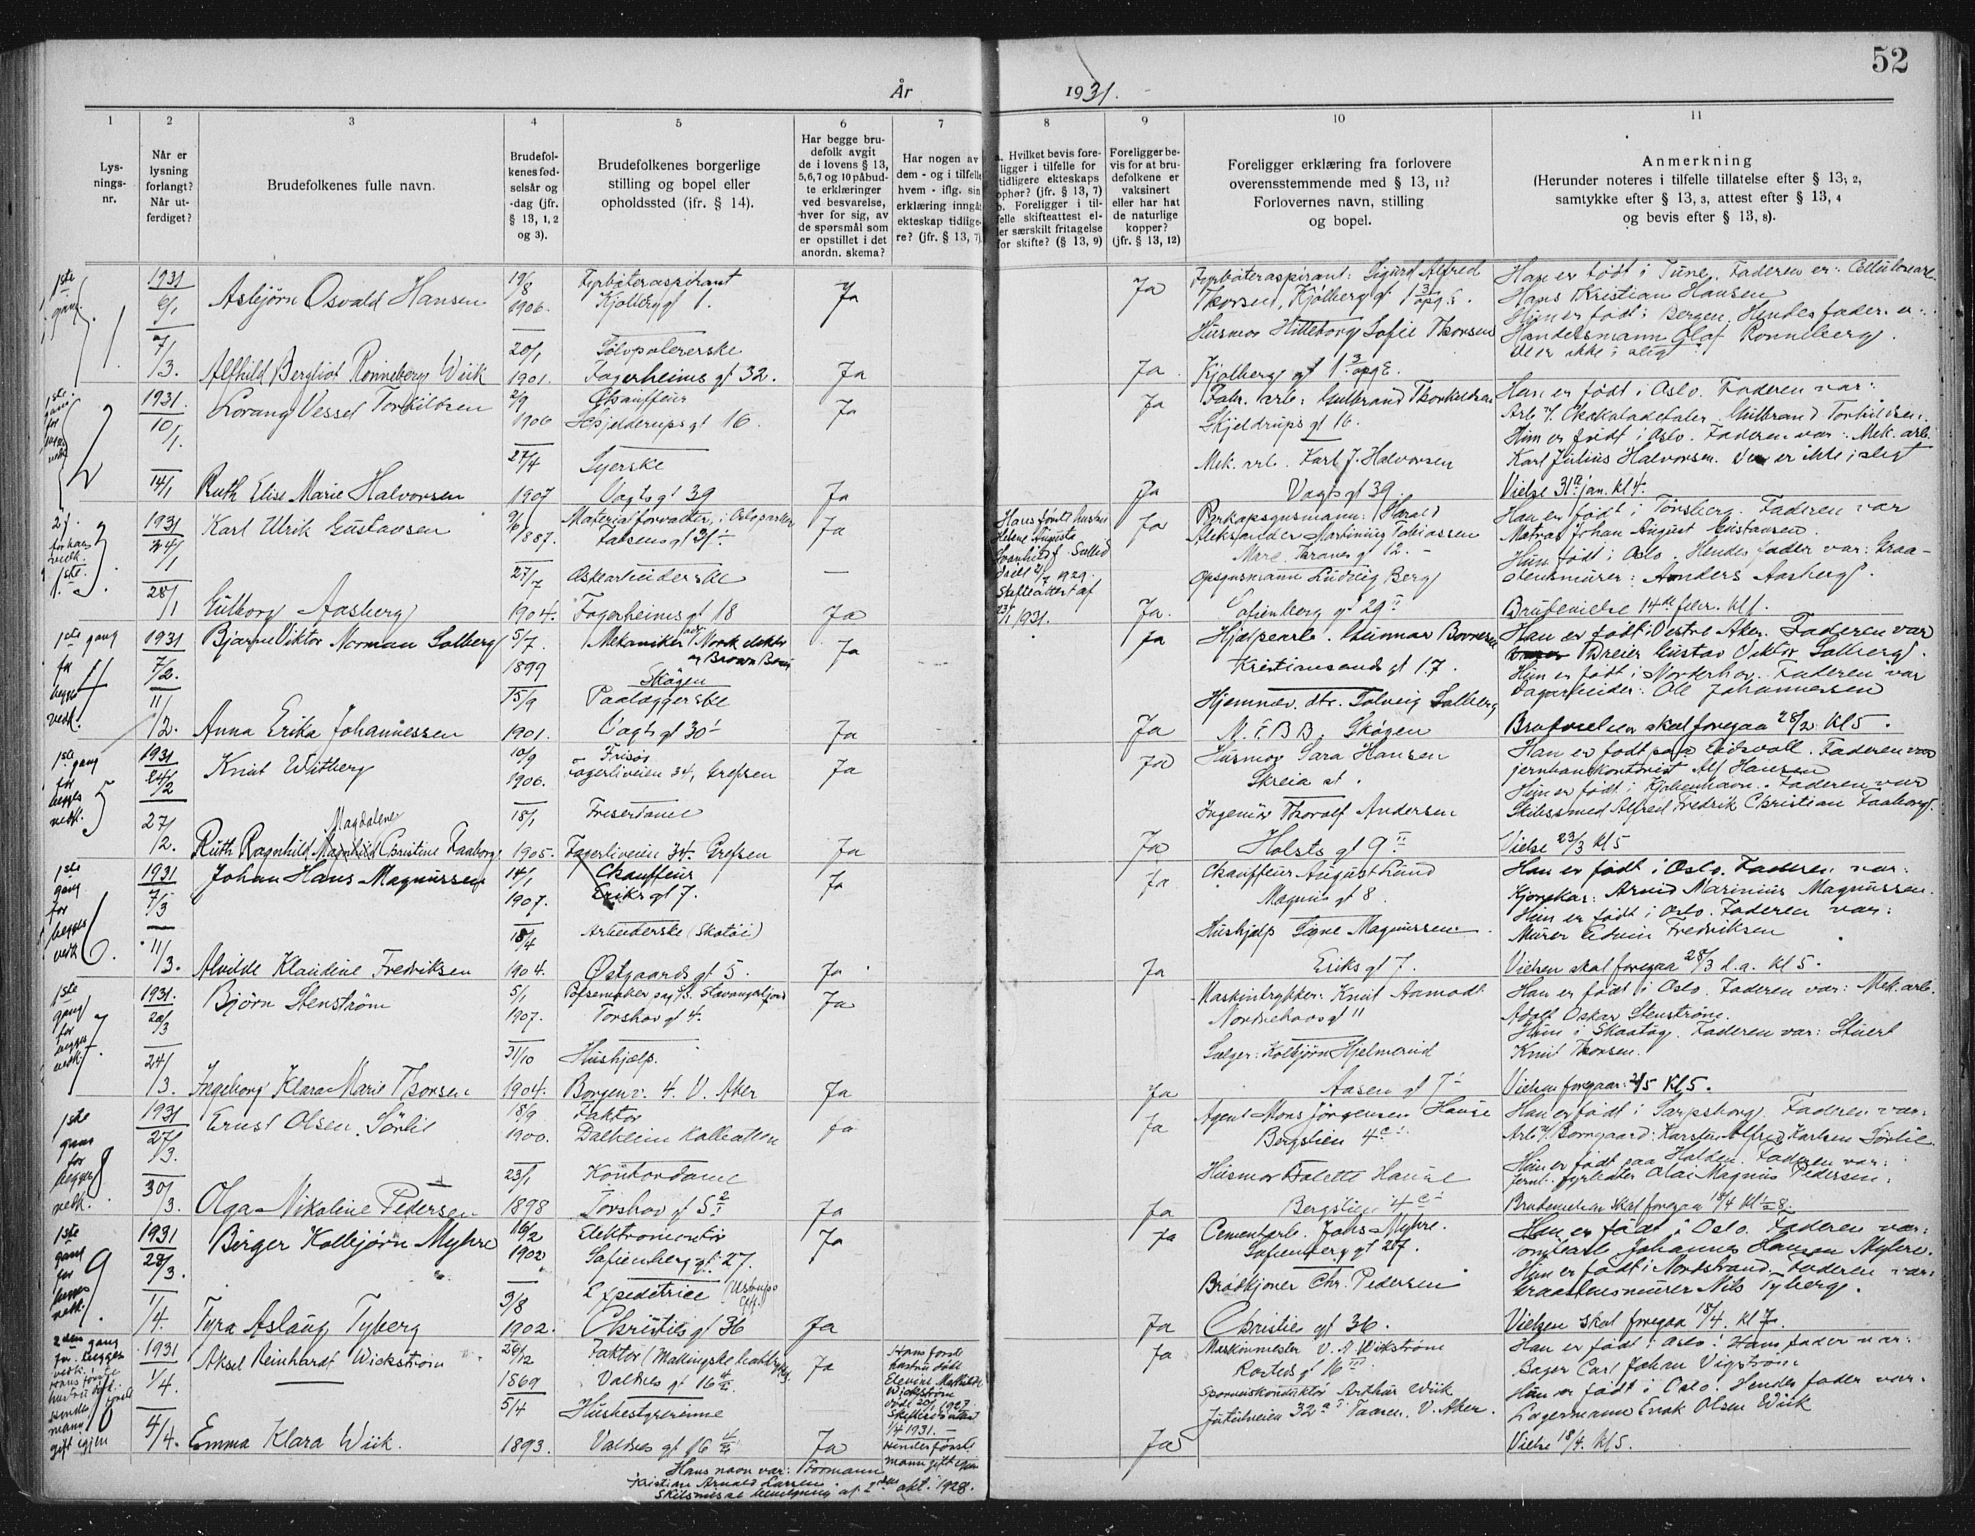 52
År 1931.
1 2 3 4 5 6 7 8 9 10 11
Lys-
nings-
nr.
Når er
lysning
forlangt?
Når ut-
ferdiget?
Brudefolkenes fulle navn.
Brudefol-
kenes fød-
selsår og
-dag (jfr.
§ 13, 1, 2
og 3).
Brudefolkenes borgerlige
stilling og bopel eller
opholdssted (ifr. § 14).
Har begge bru-
defolk avgit
de i lovens § 13,
5,6,7 og 10 påbud-
te erklæringer
ved besvarelse,
hver for sig, av
de spørsmål som
er opstillet i det
anordn. skema?
Har nogen av
dem - og i tilfelle
hvem - iflg. sin
erklæring inngåt
ekteskap tidlige-
re? (jfr. § 13, 7)
a. Hvilket bevis fore-
ligger i tilfelle for
tidligere ekteskaps
ophør? (jfr. § 13, 7)
b. Foreligger i til-
felle skifteattest el-
ler særskilt fritagelse
for skifte? (§ 13, 9)
Foreligger be-
vis for at bru-
defolkene er
vaksinert
eller har hat
de naturlige
kopper?
(jfr. § 13, 12)
Foreligger erklæring fra forlovere
overensstemmende med § 13, 11?
Forlovernes navn, stilling
og bopel.
Anmerkning
(Herunder noteres i tilfelle tillatelse efter § 13, 2,
samtykke efter § 13, 3, attest efter § 13, 4
og bevis efter § 13, 8).
1ste gang
1.
1931
6/1
7/1 3.
Asbjørn Osvald Hansen
19/8 1906.
Fyrbøteraspirant
Kjølberg gt 1.
Ja
Ja
Fyrbøteraspirant: Sigurd Alfred
Thorsen, Kjølberg gt 1
Han er født i Tune. Faderen er:
Hans Kristian Hansen
Husmor Hilleborg Sofie Thorsen
Hun er født i Bergen. Hendes fader er:
Handelsmann Olaf Rønneberg.
De er ikke i slegt
Alfhild Bergliot Rønneberg Wiik
20/1 1901.
Sølvpolererske
Fagerheims gt 32.
Ja
Ja.
Kjølberg gt 1
2
1931
10/1.
14/1
Lorang Vessel Torkildsen
2/9 1906
Chauffeur
Hjelderups gt 16.
Ja
Ja
Fabr. arb: Gulbrand Thorkildsen
Skjeldrups gt 16.
Han er født i Oslo. Faderen var:
Gulbrand Torkildsen.
Hun er født i Oslo. Faderen var: Mek. arb.
Ruth Elise Marie Halvorsen
27/4 1907
Syerske
Vogts gt 39
Ja
Ja
Mek. arb. Karl J. Halvorsen
Vogts gt 39.
Karl Julius Halvorsen. De er ikke i slegt
Vielse 31te jan. kl 4.
3.
1931
24/1
28/1
Karl Ulrik Gustavsen
9/6 1887.
Materialforvalter, i Osloparken
Ja
Hans første hustru
Helene Augusta
død 2/7 1929.
Skifteattest af
23/1 1931.
Ja
Aleksander Martinius Tobiassen
Marc. Thranes gt 12.
Han er født i Tønsberg. Faderen var
Matros Johan August Gustavsen.
Hun født i Oslo. Hendes fader var: Graa-
stensmurer: Anders Aasberg.
Gulborg Aasberg
27/7 1904.
Øskearbeiderske
Fagerheims gt 18
—
Ja
Ja.
Opsynsmann Ludvig Berg
Sofienberg gt 29
Brudevielse 14de febr. kl 1.
1ste gang
for
begges
vedk.
4
1931
7/2.
11/2.
Bjarne Viktor Norman Solberg
5/7. 1899
Mekaniker
Brown Boveri
Skøyen
Ja
Ja
Hjelpearb. Gunnar
Kristiansands gt 17.
Han er født i Vestre Aker. Faderen var
Dreier Gustav Viktor Solberg.
Hun er født i Norderhov. Faderen var
Dagarbeider: Ole Johannessen
Anna Erika Johannessen
15/9 1901.
Paalæggerske
Vogts gt 30
Ja
Ja
Hjemmev. dtr. Solveig Solberg
N. E. B. B. Skøyen
Brudevielsen skal foregaa 28/2 kl 5.
1ste gang
for
begges
vedk.
5
1931
24/2
27/2.
Knut Witberg
10/9 1906.
Frisør
Fagerliveien 34, Grefsen
Ja
Ja
Husmor Sara Hansen
Skreia st.
Han er født paa Eidsvoll. Faderen var
jernbanekontorist Alf Hansen
Hun er født i Kjøbenhavn. Faderen var
Skibssmed Alfred Fredrik Christian Faaborg.
Magdalene
Ruth Ragnhild Magnhild Christine Faaborg
18/1 1905.
Friserdame
Fagerliveien 34. Grefsen
Ja
Ja
Ingeniør Thoralf Andersen
Holsts gt 9 II
Vielse 23/3 kl 5
1ste
gang
for
begges
vedk
6.
1931
7/3
11/3.
Johan Hans Magnussen
14/1 1907.
Chauffeur
Eriks gt 7.
Ja
Ja.
Chauffeur August Lund
Magnus gt 8.
Han er født i Oslo. Faderen var:
Kjørekar: Arvid Marinius Magnussen.
Hun er født i Oslo. Faderen var:
Murer Edvin Fredriksen
Alvilde Klaudine Fredriksen
18/4 1904.
Arbeiderske (Skotøi)
Østgaards gt 5.
Ja.
Ja
Hushjelp Signe Magnussen
Eriks gt 7.
Vielsen skal foregaa 28/3 d.a. kl 5.
1ste
gang
for
begges
vedk.
7.
1931.
20/3
24/3.
Bjørn Stenstrøm
5/1 1907.
Torshov gt 4.
Ja
Maskintrykker: Knut Aamodt
Nordrehovs gt 11
Han er født i Oslo. Faderen var: Mek. arb.
Adolf Oskar Stenstrøm.
Hun i Skaatøy. Faderen var: Stuert
Knut Thorsen.
Ingeborg Klara Marie Thorsen
31/10 1904.
Hushjelp.
Borgenv. 4. V. Aker
Ja
Ja
Selger: Kolbjørn Hjelmerud
Aasen gt 7
Vielsen foregaar: 2/5 kl 5.
1ste
gang
for
begges
vedk.
8
1931
27/3.
30/3.
Ernst Olsen Sørlie
18/9 1900.
Faktor
Dalheim Kolbotten
Ja
Ja
Agent Mons Jørgensen Hause
Bergslien 4
Han er født i Sarpsborg. Faderen var:
Arb v/ Borregaard: Karsten Alfred Karlsen Sørlie
Hun er født paa Halden. Faderen var:
fyrbøter Olai Magnus Pedersen.
Olga Nikoline Pedersen
23/1 1898
Kontordame
Torshov gt 5
Ja
Ja
Husmor Bolette Hause
Bergslien 4
Brudevielsen skal foregaa 18/4 kl 1/2 8.
1ste
gang
for
begges
vedk.
9
1931
28/3.
1/4.
Birger Kolbjørn Myhre
16/2 1902
Elektromontør
Sofienberg gt 27.
Ja
Ja
Cementarb. Johs Myhre.
Sofienberg gt 27.
Han er født i Oslo. Faderen var:
Johannes Hansen Myhre.
Hun er født i Nordstrand. Faderen var:
Graastensmurer Nils Tyberg.
Tyra Aslaug Tyberg
3/8 1902.
Expeditrice
Christies gt 36
Ja
Ja
Brødkjører Chr. Pedersen
Christies gt 36.
Vielsen skal foregaa 18/4. kl 7.
2den gang
for begges
vedk.
hans første
hustru død.
hendes første
mann
gift igjen
10
1931
1/4.
4/4.
Aksel Reinhardt Wickstrøm
26/12 1869
Faktor
Valdres gt 16
Ja
Hans første
hustru død
Elevine Mathilde
Wickstrøm
død 20/1 1927
Skifteattest
1/4 1931.
Hendes første
mann gift igjen
Ja
Maskinmester V. A Wikstrøm
Rosteds gt 16 III
Han er født i Oslo. Hans fader var:
Bager Carl Johan Vigstrøm
Hun er født i Oslo. Hendes fader var:
Lagermann Enok Olsen Wiik
Emma Klara Wiik.
5/4 1893.
Husbestyrerinne
Valdres gt 16
Ja
Ja
Sporveiskonduktør Arthur Wiik
Jutulveien 32 Taasen. V. Aker.
Vielse 18/4. kl 5.
Hans navn var: Formann
Kristian Arnold Larsen.
Skilsmisse bevilgning af 2den okt. 1928.